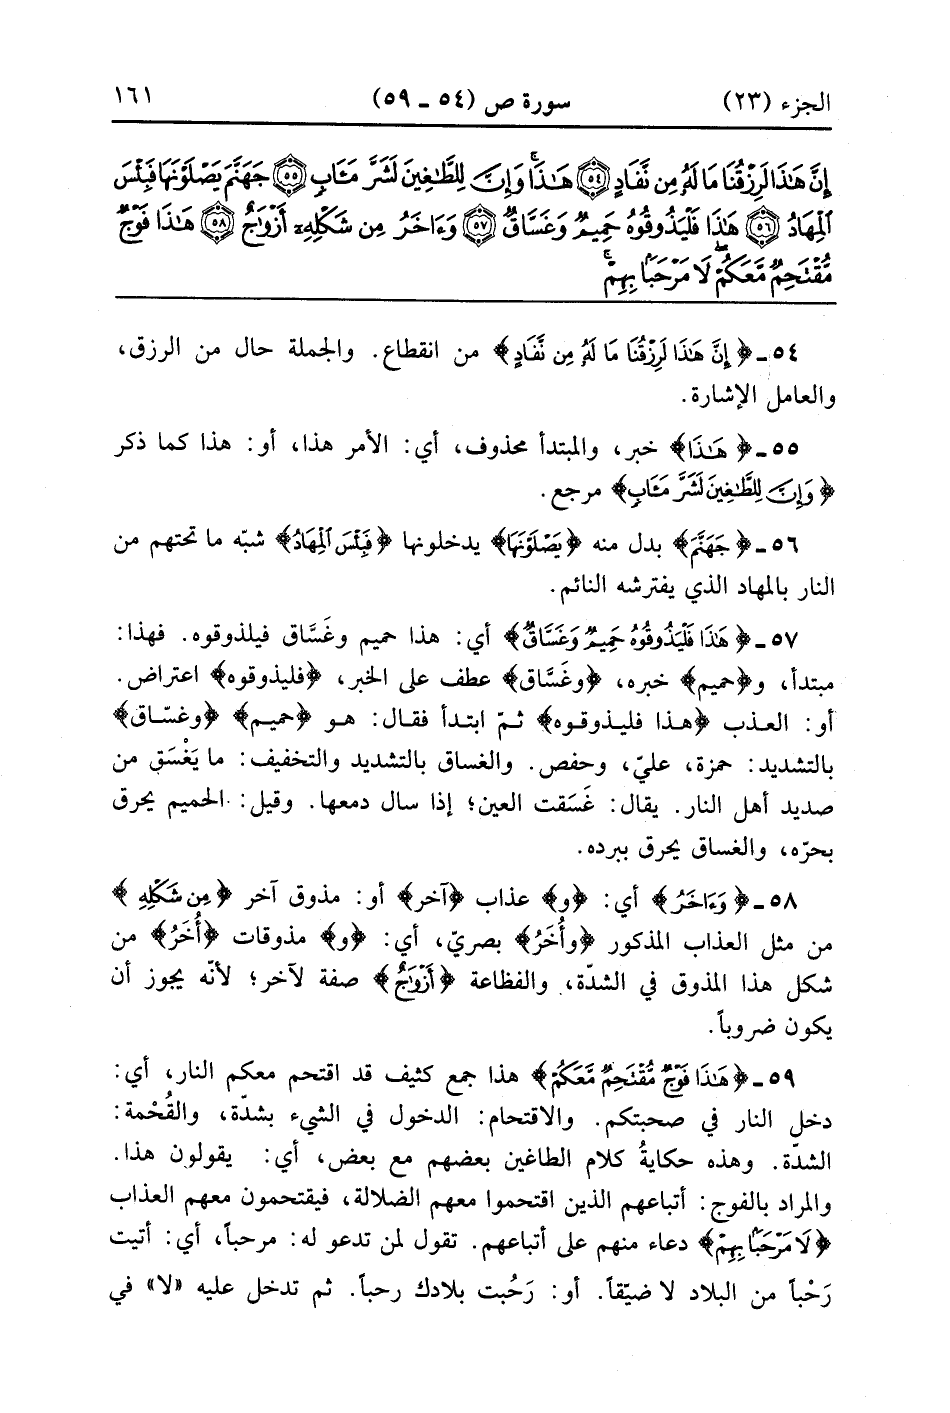 الجزء (٢٣) سورة ص (٥٤ ـ ٥٩) ١٦١
إِنَّ هَٰذَا لَرِزْقُنَا مَا لَهُۥ مِن نَّفَادٍ ۝٥٤ هَٰذَاۚ وَإِنَّ لِلطَّٰغِينَ لَشَرَّ مَـَٔابٍ ۝٥٥ جَهَنَّمَ يَصْلَوْنَهَا فَبِئْسَ
ٱلْمِهَادُ ۝٥٦ هَٰذَا فَلْيَذُوقُوهُ حَمِيمٌ وَغَسَّاقٌ ۝٥٧ وَءَاخَرُ مِن شَكْلِهِۦٓ أَزْوَٰجٌ ۝٥٨ هَٰذَا فَوْجٌ
مُّقْتَحِمٌ مَّعَكُمْۖ لَا مَرْحَبًۢا بِهِمْۚ
٥٤ ـ ﴿إِنَّ هَٰذَا لَرِزْقُنَا مَا لَهُۥ مِن نَّفَادٍ﴾ من انقطاع. والجملة حال من الرزق،
والعامل الإشارة.
٥٥ ـ ﴿هَٰذَا﴾ خبر، والمبتدأ محذوف، أي: الأمر هذا، أو: هذا كما ذكر
﴿وَإِنَّ لِلطَّٰغِينَ لَشَرَّ مَـَٔابٍ﴾ مرجع.
٥٦ ـ ﴿جَهَنَّمَ﴾ بدل منه ﴿يَصْلَوْنَهَا﴾ يدخلونها ﴿فَبِئْسَ ٱلْمِهَادُ﴾ شبّه ما تحتهم من
النار بالمهاد الذي يفترشه النائم.
٥٧ ـ ﴿هَٰذَا فَلْيَذُوقُوهُ حَمِيمٌ وَغَسَّاقٌ﴾ أي: هذا حميم وغَسَّاق فيلذوقوه. فهذا:
مبتدأ، و﴿حميم﴾ خبره، ﴿وغَسَّاق﴾ عطف على الخبر، ﴿فليذوقوه﴾ اعتراض.
أو: العذب ﴿هذا فليذوقوه﴾ ثمّ ابتدأ فقال: هو ﴿حميم﴾ ﴿وغسّاق﴾
بالتشديد: حمزة، عليّ، وحفص. والغساق بالتشديد والتخفيف: ما يَغْسَق من
صديد أهل النار. يقال: غَسَقت العين؛ إذا سال دمعها. وقيل: الحميم يحرق
بحرّه، والغساق يحرق ببرده.
٥٨ ـ ﴿وَءَاخَرُ﴾ أي: ﴿و﴾ عذاب ﴿آخر﴾ أو: مذوق آخر ﴿مِن شَكْلِهِ﴾
من مثل العذاب المذكور ﴿وأُخَرُ﴾ بصريّ، أي: ﴿و﴾ مذوقات ﴿أُخَرُ﴾ من
شكل هذا المذوق في الشدّة، والفظاعة ﴿أَزْوَٰجٌ﴾ صفة لآخر؛ لأنّه يجوز أن
يكون ضروباً.
٥٩ ـ ﴿هَٰذَا فَوْجٌ مُّقْتَحِمٌ مَّعَكُمْ﴾ هذا جمع كثيف قد اقتحم معكم النار، أي:
دخل النار في صحبتكم. والاقتحام: الدخول في الشيء بشدّة، والقُحْمة:
الشدّة. وهذه حكايةُ كلام الطاغين بعضهم مع بعض، أي: يقولون هذا.
والمراد بالفوج: أتباعهم الذين اقتحموا معهم الضلالة، فيقتحمون معهم العذاب
﴿لَا مَرْحَبًۢا بِهِمْ﴾ دعاء منهم على أتباعهم. تقول لمن تدعو له: مرحباً، أي: أتيت
رَحْباً من البلاد لا ضيّقاً. أو: رَحُبت بلادك رحباً. ثم تدخل عليه «لا» في